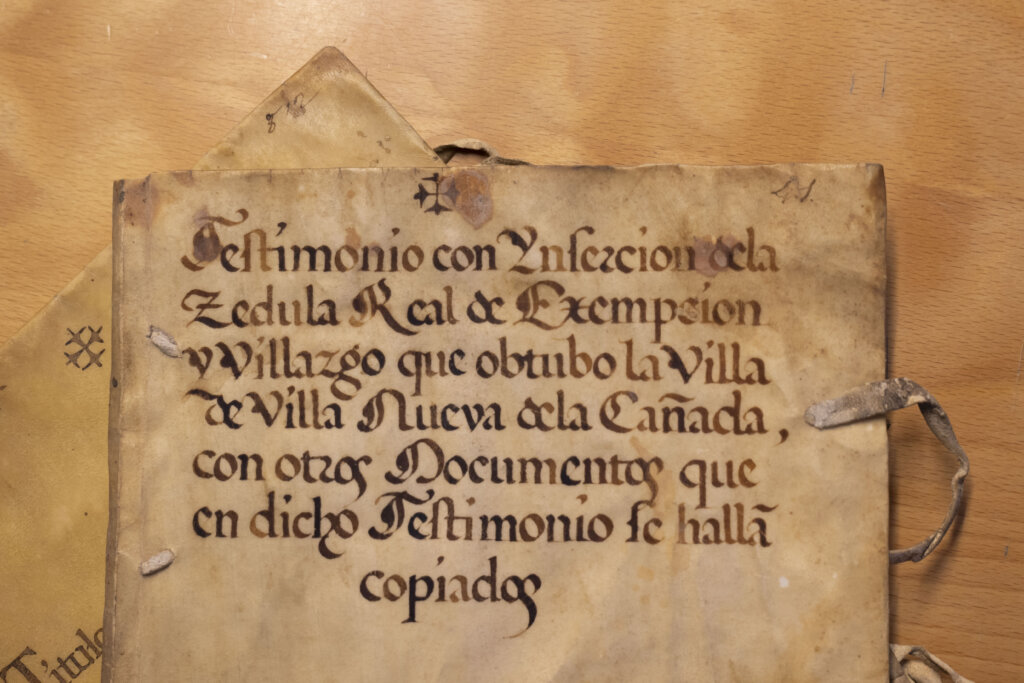 Testimonio con Ynsercion dela
Zedula Real de Exempcion
y Villazgo que obtubo la Villa
de Villa Nueva dela Cañada,
con otros Documentos que
en dicho Testimonio se hallã
copiados
Titulo